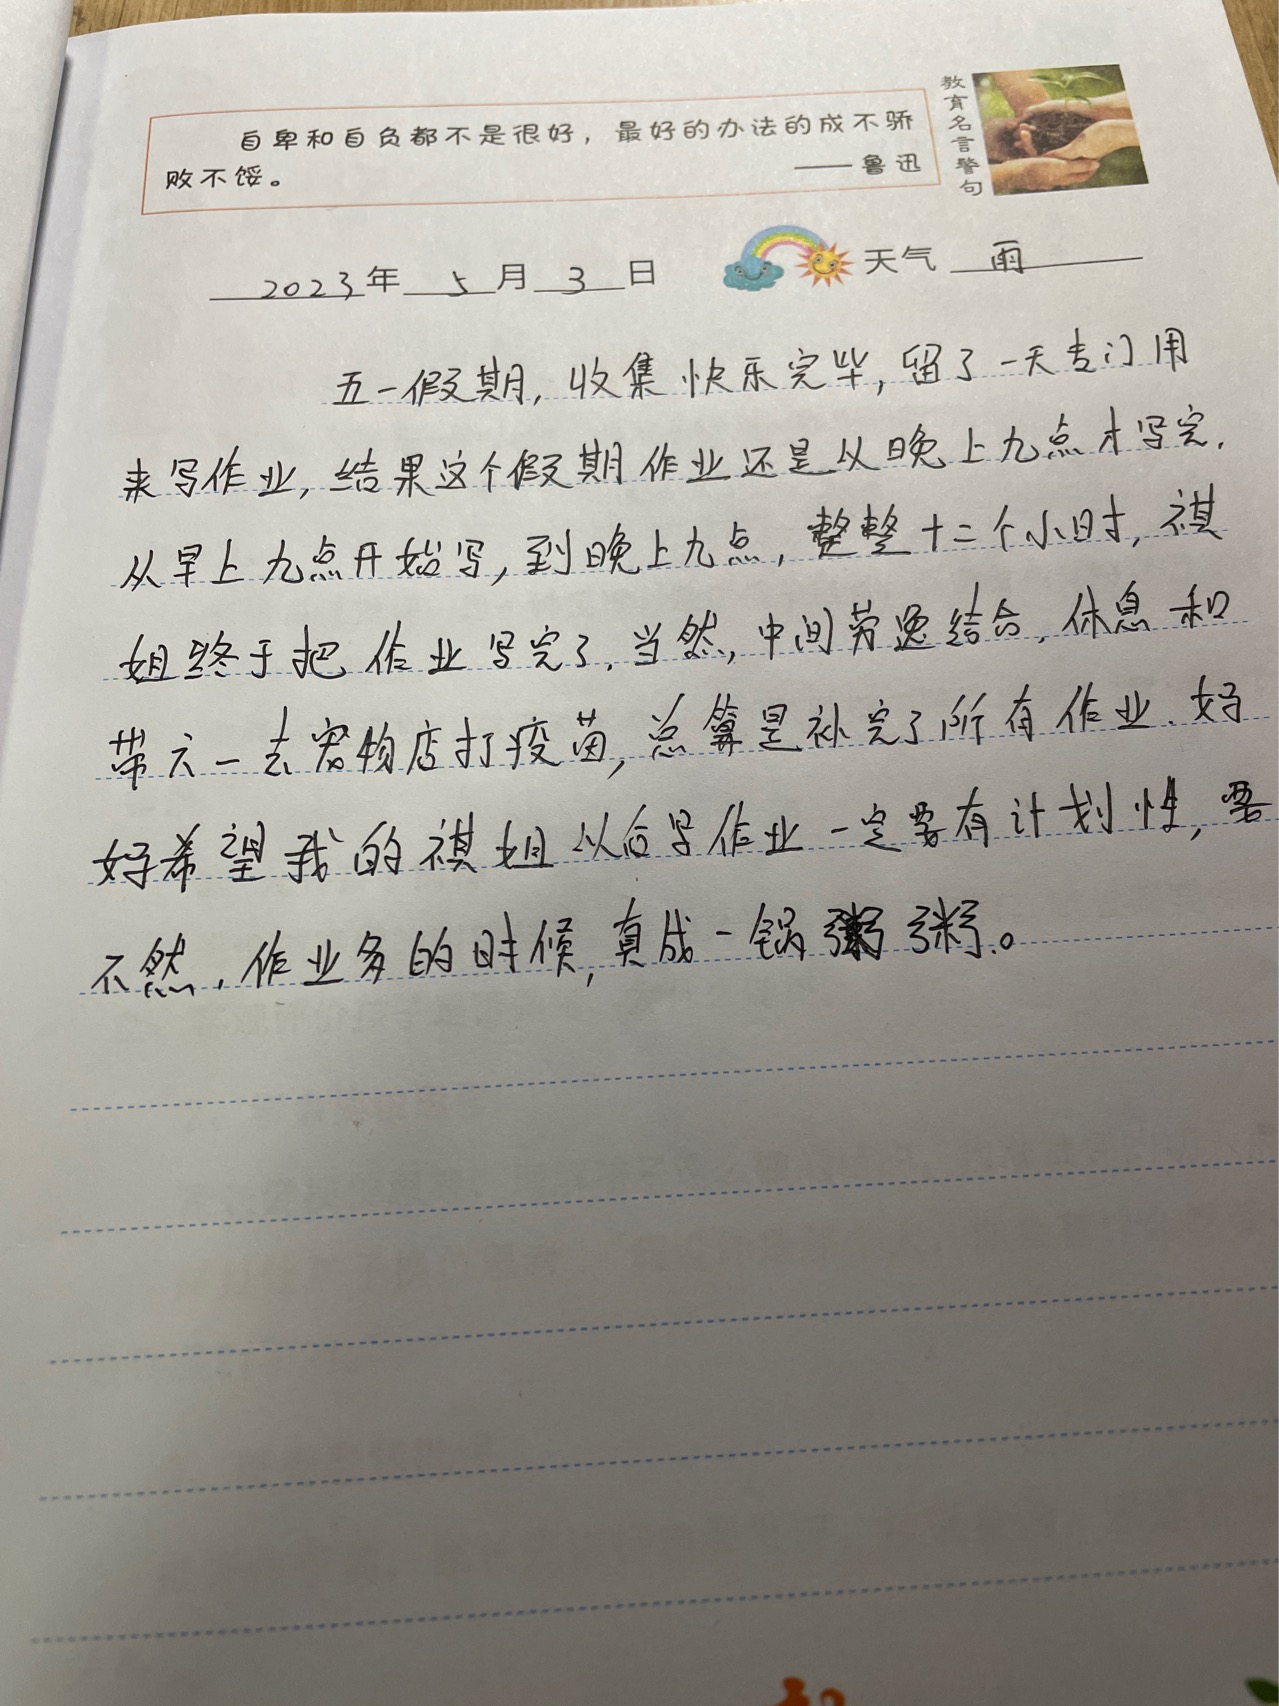 自卑和自负都不是很好，最好的办法的成不骄
败不馁。
——鲁迅
教育名言警句
2023年5月3日 天气 雨
五一假期，收集快乐完毕，留了一天专门用
来写作业，结果这个假期作业还是从晚上九点才写完．
从早上九点开始写，到晚上九点，整整十二个小时，祺
姐终于把作业写完了．当然，中间劳逸结合，休息和
带六一去宠物店打疫苗，总算是补完了所有作业．好
好希望我的祺姐以后写作业一定要有计划性，要
不然，作业多的时候，真成一锅粥粥。